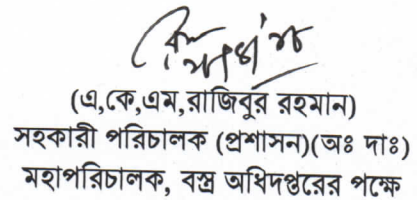 (এ,কে,এম,রাজিবুর রহমান)
সহকারী পরিচালক (প্রশাসন)(অঃ দাঃ)
মহাপরিচালক, বস্ত্র অধিদপ্তরের পক্ষে